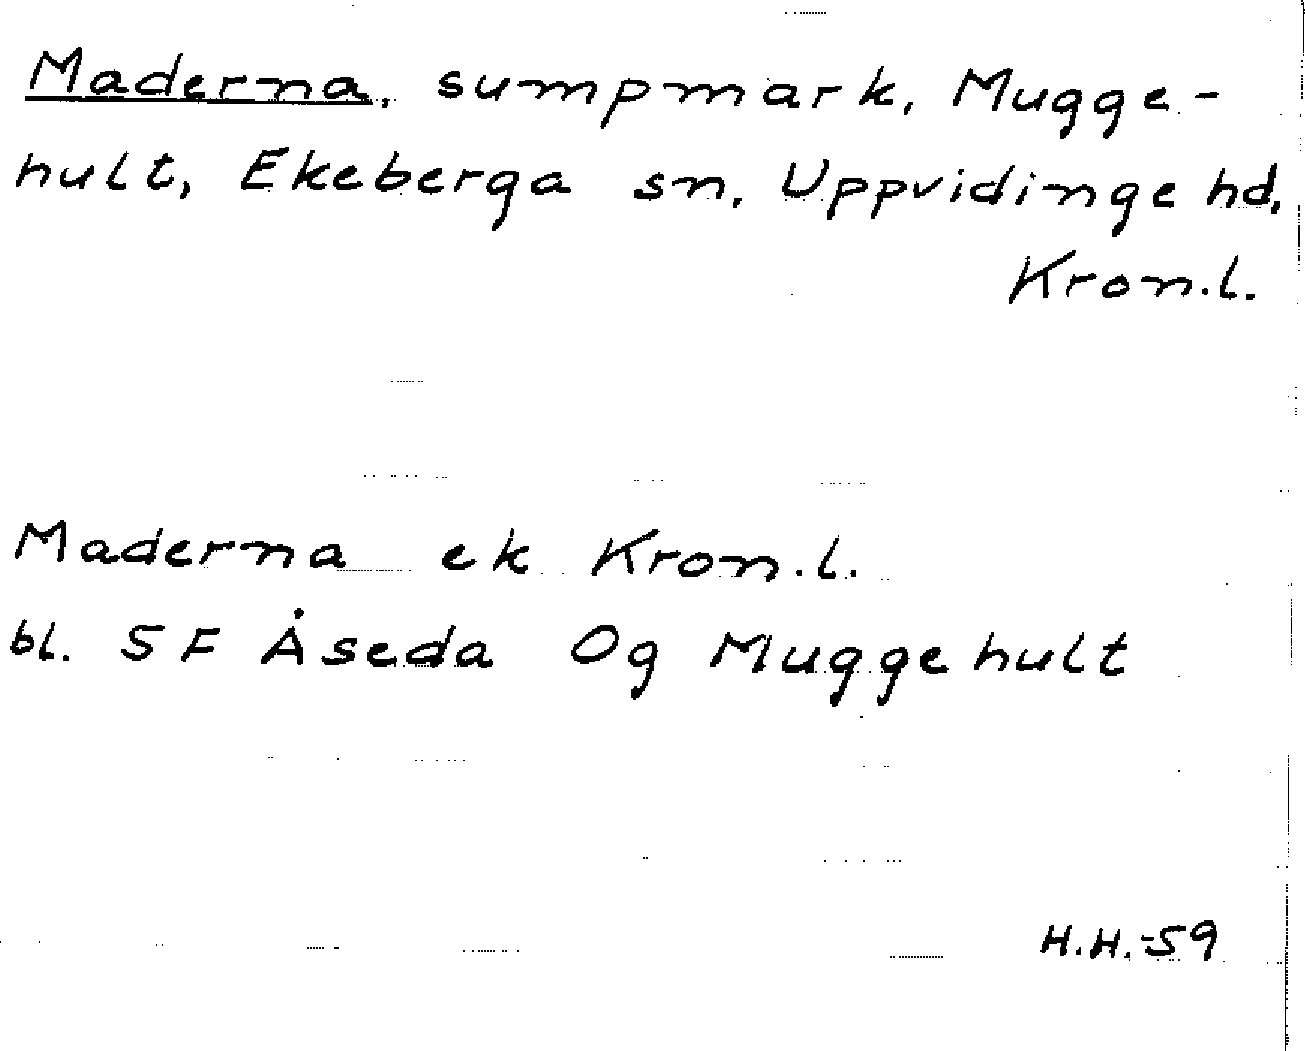 Maderna, sumpmark, Mugge-
hult, Ekeberga sn, Uppvidinge hd,
Kron.l.
Maderna ek Kron.l.
bl. 5F Åseda Og Muggehult
H.H.-59